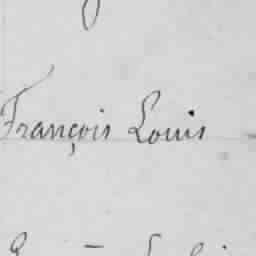 François Louis